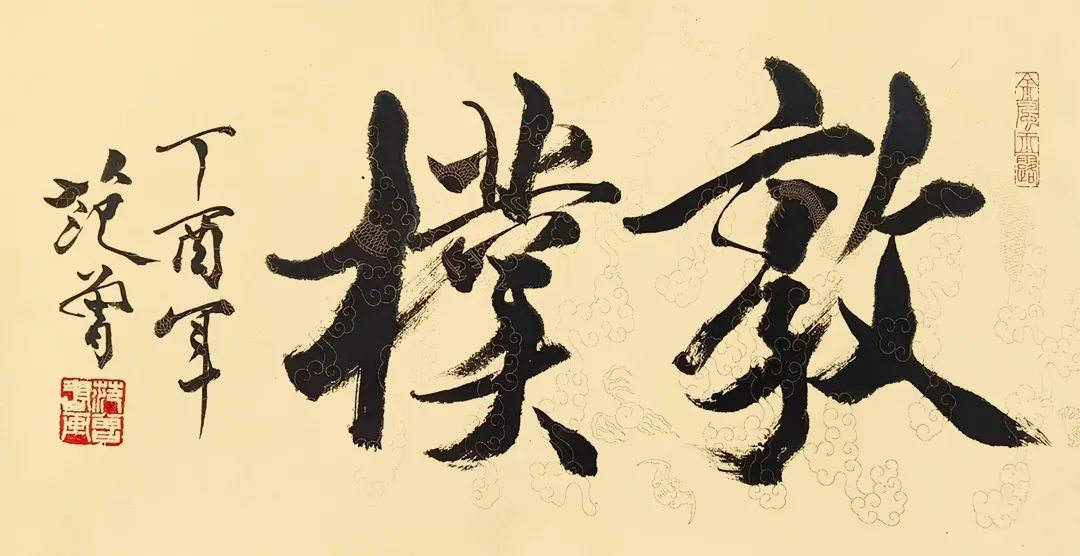 敦樸
丁酉年
范曾